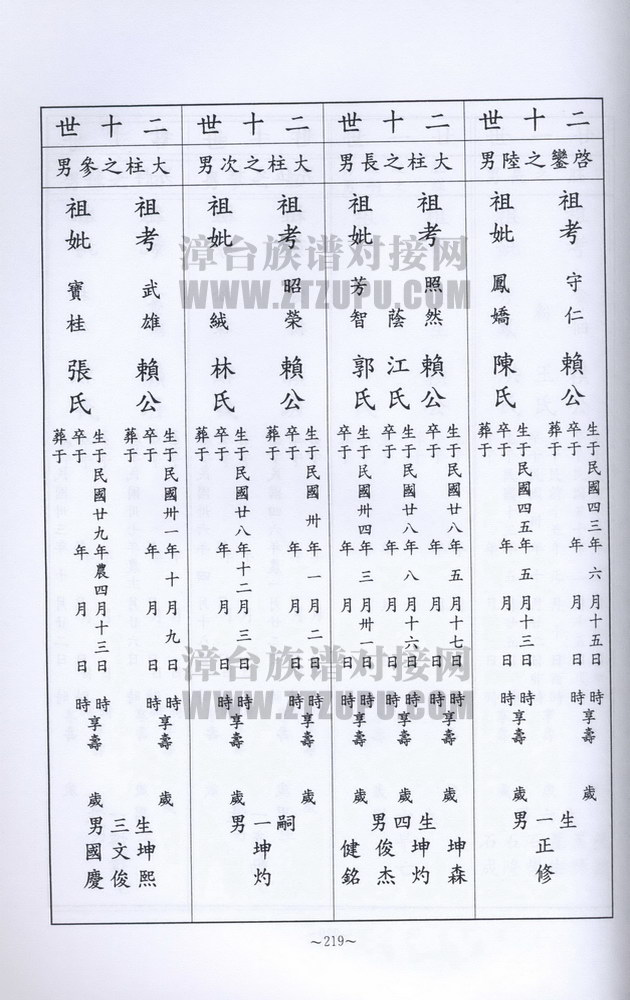 二十世
啓鑾之陸男
祖考 守仁 賴公 生于民國四三年六月十五日 時
卒于 年 月 日 時享壽 歲
葬于
祖妣 鳳嬌 陳氏 生于民國四五年五月十三日 時
卒于 年 月 日 時享壽 歲
葬于
生一男
正修
二十世
大柱之長男
祖考 照然 賴公 生于民國廿八年五月十七日 時
卒于 年 月 日 時享壽 歲
蔭 江氏 生于民國廿八年八月十六日 時
卒于 年 月 日 時享壽
祖妣 芳智 郭氏 生于民國卅四年三月卅一日 時
卒于 年 月 日 時享壽 歲
生四男
坤森
坤灼
俊杰
健銘
二十世
大柱之次男
祖考 昭榮 賴公 生于民國卅年一月二日 時
卒于 年 月 日 時享壽 歲
葬于
祖妣 絨 林氏 生于民國廿八年十二月三日 時
卒于 年 月 日 時享壽 歲
葬于
嗣一男
坤灼
二十世
大柱之參男
祖考 武雄 賴公 生于民國卅一年十月九日 時
卒于 年 月 日 時享壽 歲
葬于
祖妣 寶桂 張氏 生于民國廿九年農四月十三日 時
卒于 年 月 日 時享壽 歲
葬于
生三男
坤熙
文俊
國慶
漳台族谱对接网
WWW.ZTZUPU.COM
漳台族谱对接网
WWW.ZTZUPU.COM
~219~